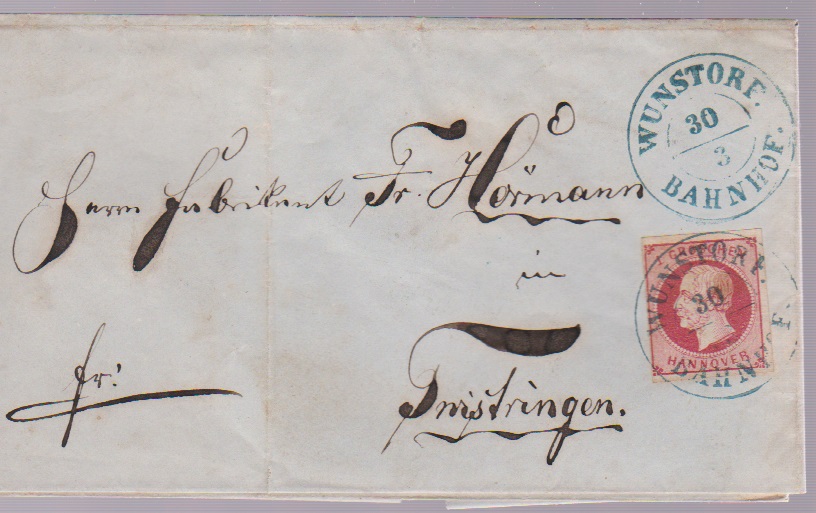 WUNSTORF.
30
3
BAHNHOF.
Herrn Fabrikant Fr. Hörmann
in
Twistringen.
fr:
GROSCHEN
HANNOVER
WUNSTORF.
30
BAHNHOF.